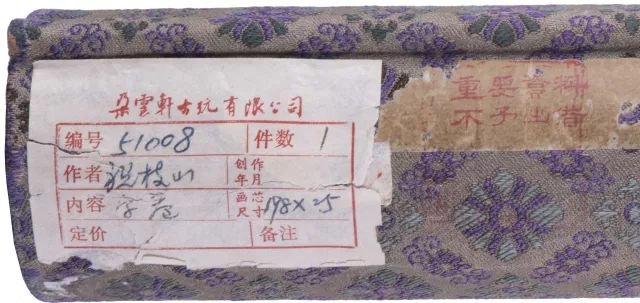 朵雲軒古玩有限公司
编号 51008 件数 1
作者 祝枝山 创作年月
内容 字卷 画芯尺寸 198×25
定价 备注
重要資料
不予出借